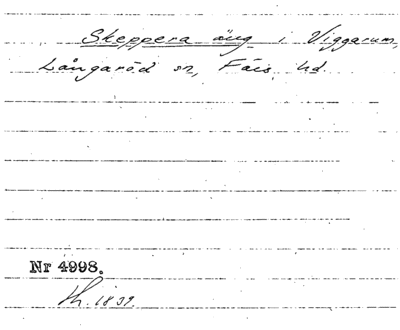 Skeppera äng i Viggarum,
Långaröd sn, Färs hd.
Nr 4998.
th. 1839.